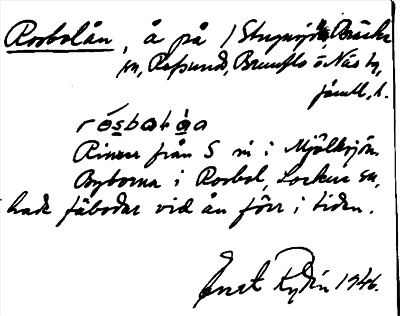 Rosbolån, å på / Stugusjö, Bräcke
sn, Rafsund, Brunflo o Näs tg,
Jämtl. l.
Rinner från S in i Mjölksjön.
Byborna i Rosbol, Lockne sn,
hade fäbodar vid ån förr i tiden.
Ernst Rydin 1946.